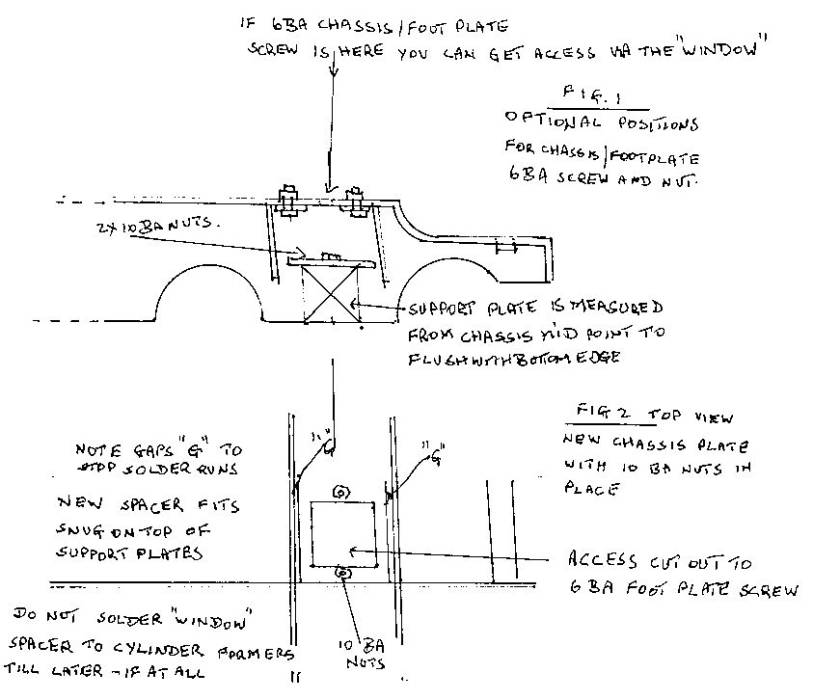 IF 6BA CHASSIS/FOOT PLATE
SCREW IS HERE YOU CAN GET ACCESS VIA THE "WINDOW"
FIG. 1
OPTIONAL POSITIONS
FOR CHASSIS/FOOTPLATE
6BA SCREW AND NUT.
2X 10 BA NUTS.
SUPPORT PLATE IS MEASURED
FROM CHASSIS MID POINT TO
FLUSH WITH BOTTOM EDGE
FIG 2 TOP VIEW
NEW CHASSIS PLATE
WITH 10 BA NUTS IN
PLACE
NOTE GAPS "G" TO
STOP SOLDER RUNS
"G"
"G"
NEW SPACER FITS
SNUG ON TOP OF
SUPPORT PLATES
ACCESS CUT OUT TO
6 BA FOOT PLATE SCREW
DO NOT SOLDER "WINDOW"
SPACER TO CYLINDER FORMERS
TILL LATER - IF AT ALL
10 BA
NUTS